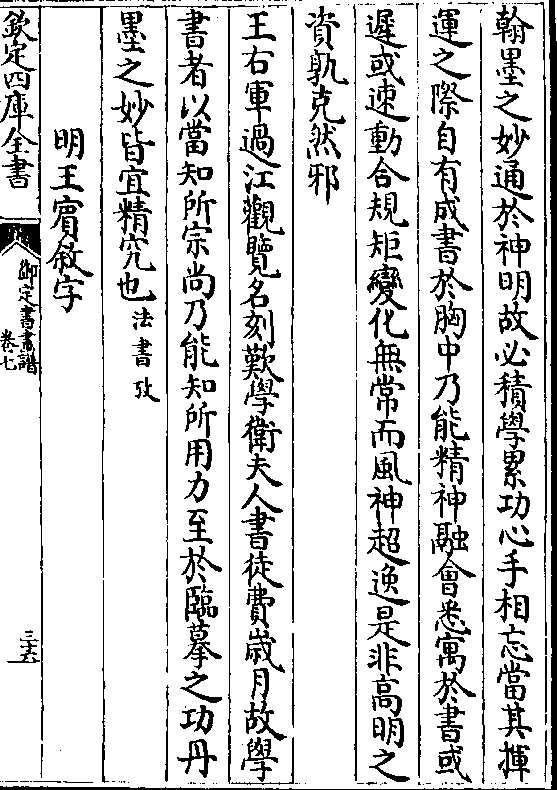 翰墨之妙通於神明故必積學累功心手相忘當其揮
運之際自有成書於胸中乃能精神融會悉寓於書或
遲或速動合規矩變化無常而風神超逸是非高明之
資孰克然邪
王右軍過江觀覽名刻歎學衛夫人書徒費歲月故學
書者以當知所宗尚乃能知所用力至於臨摹之功丹
墨之妙皆宜精究也法書攷
明王賓敘字
欽定四庫全書
御定書畫譜
卷七
三十六